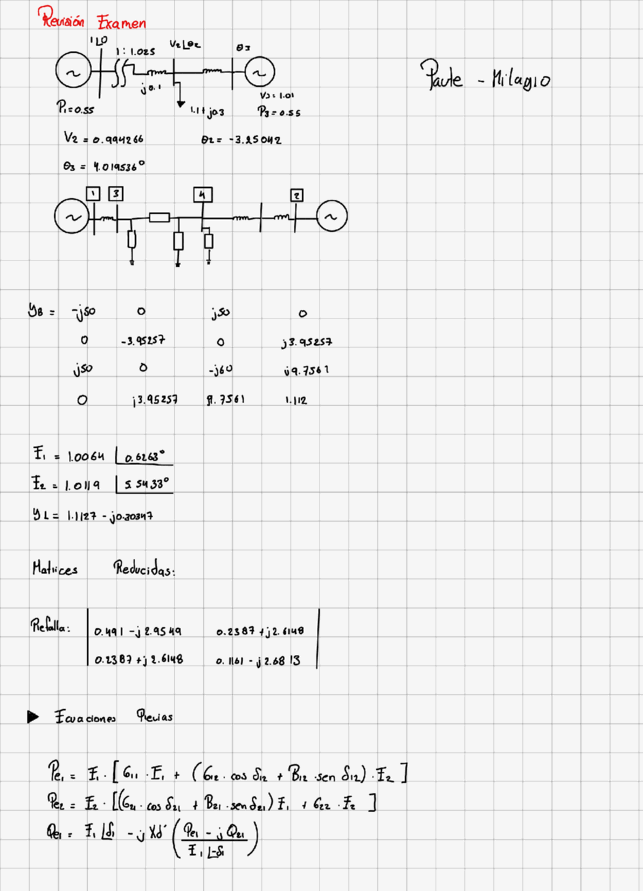 Revisión Examen
1∟0
1:1.025
V2∟θ2
θ3
Paute - Milagro
j0.1
P1=0.55
1.1+j0.3
V3=1.01
P3=0.55
V2 = 0.994266 θ2 = -3.25042
θ3 = 4.019536°
1 3 4 2
YB = -j50 0 j50 0
0 -3.95257 0 j3.95257
j50 0 -j60 j9.7561
0 j3.95257 9.7561 1.112
E1 = 1.0064 ∟0.6263°
E2 = 1.0119 ∟5.5433°
YL = 1.1127 - j0.30347
Matrices Reducidas:
Prefalla:
0.491 - j2.9549 0.2387 + j2.6148
0.2387 + j2.6148 0.1161 - j2.6813
► Ecuaciones Previas
Pe1 = E1 · [G11 · E1 + (G12 · cos δ12 + B12 · sen δ12) · E2]
Pe2 = E2 · [(G21 · cos δ21 + B21 · sen δ21) E1 + G22 · E2]
Pe1 = E1∟δ1 - j Xd' (Pe1 - j Qe1 / E1∟-δ1)